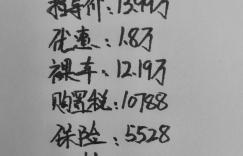 指导价：13.99万
优惠：1.8万
裸车：12.19万
购置税：10788
保险：5528